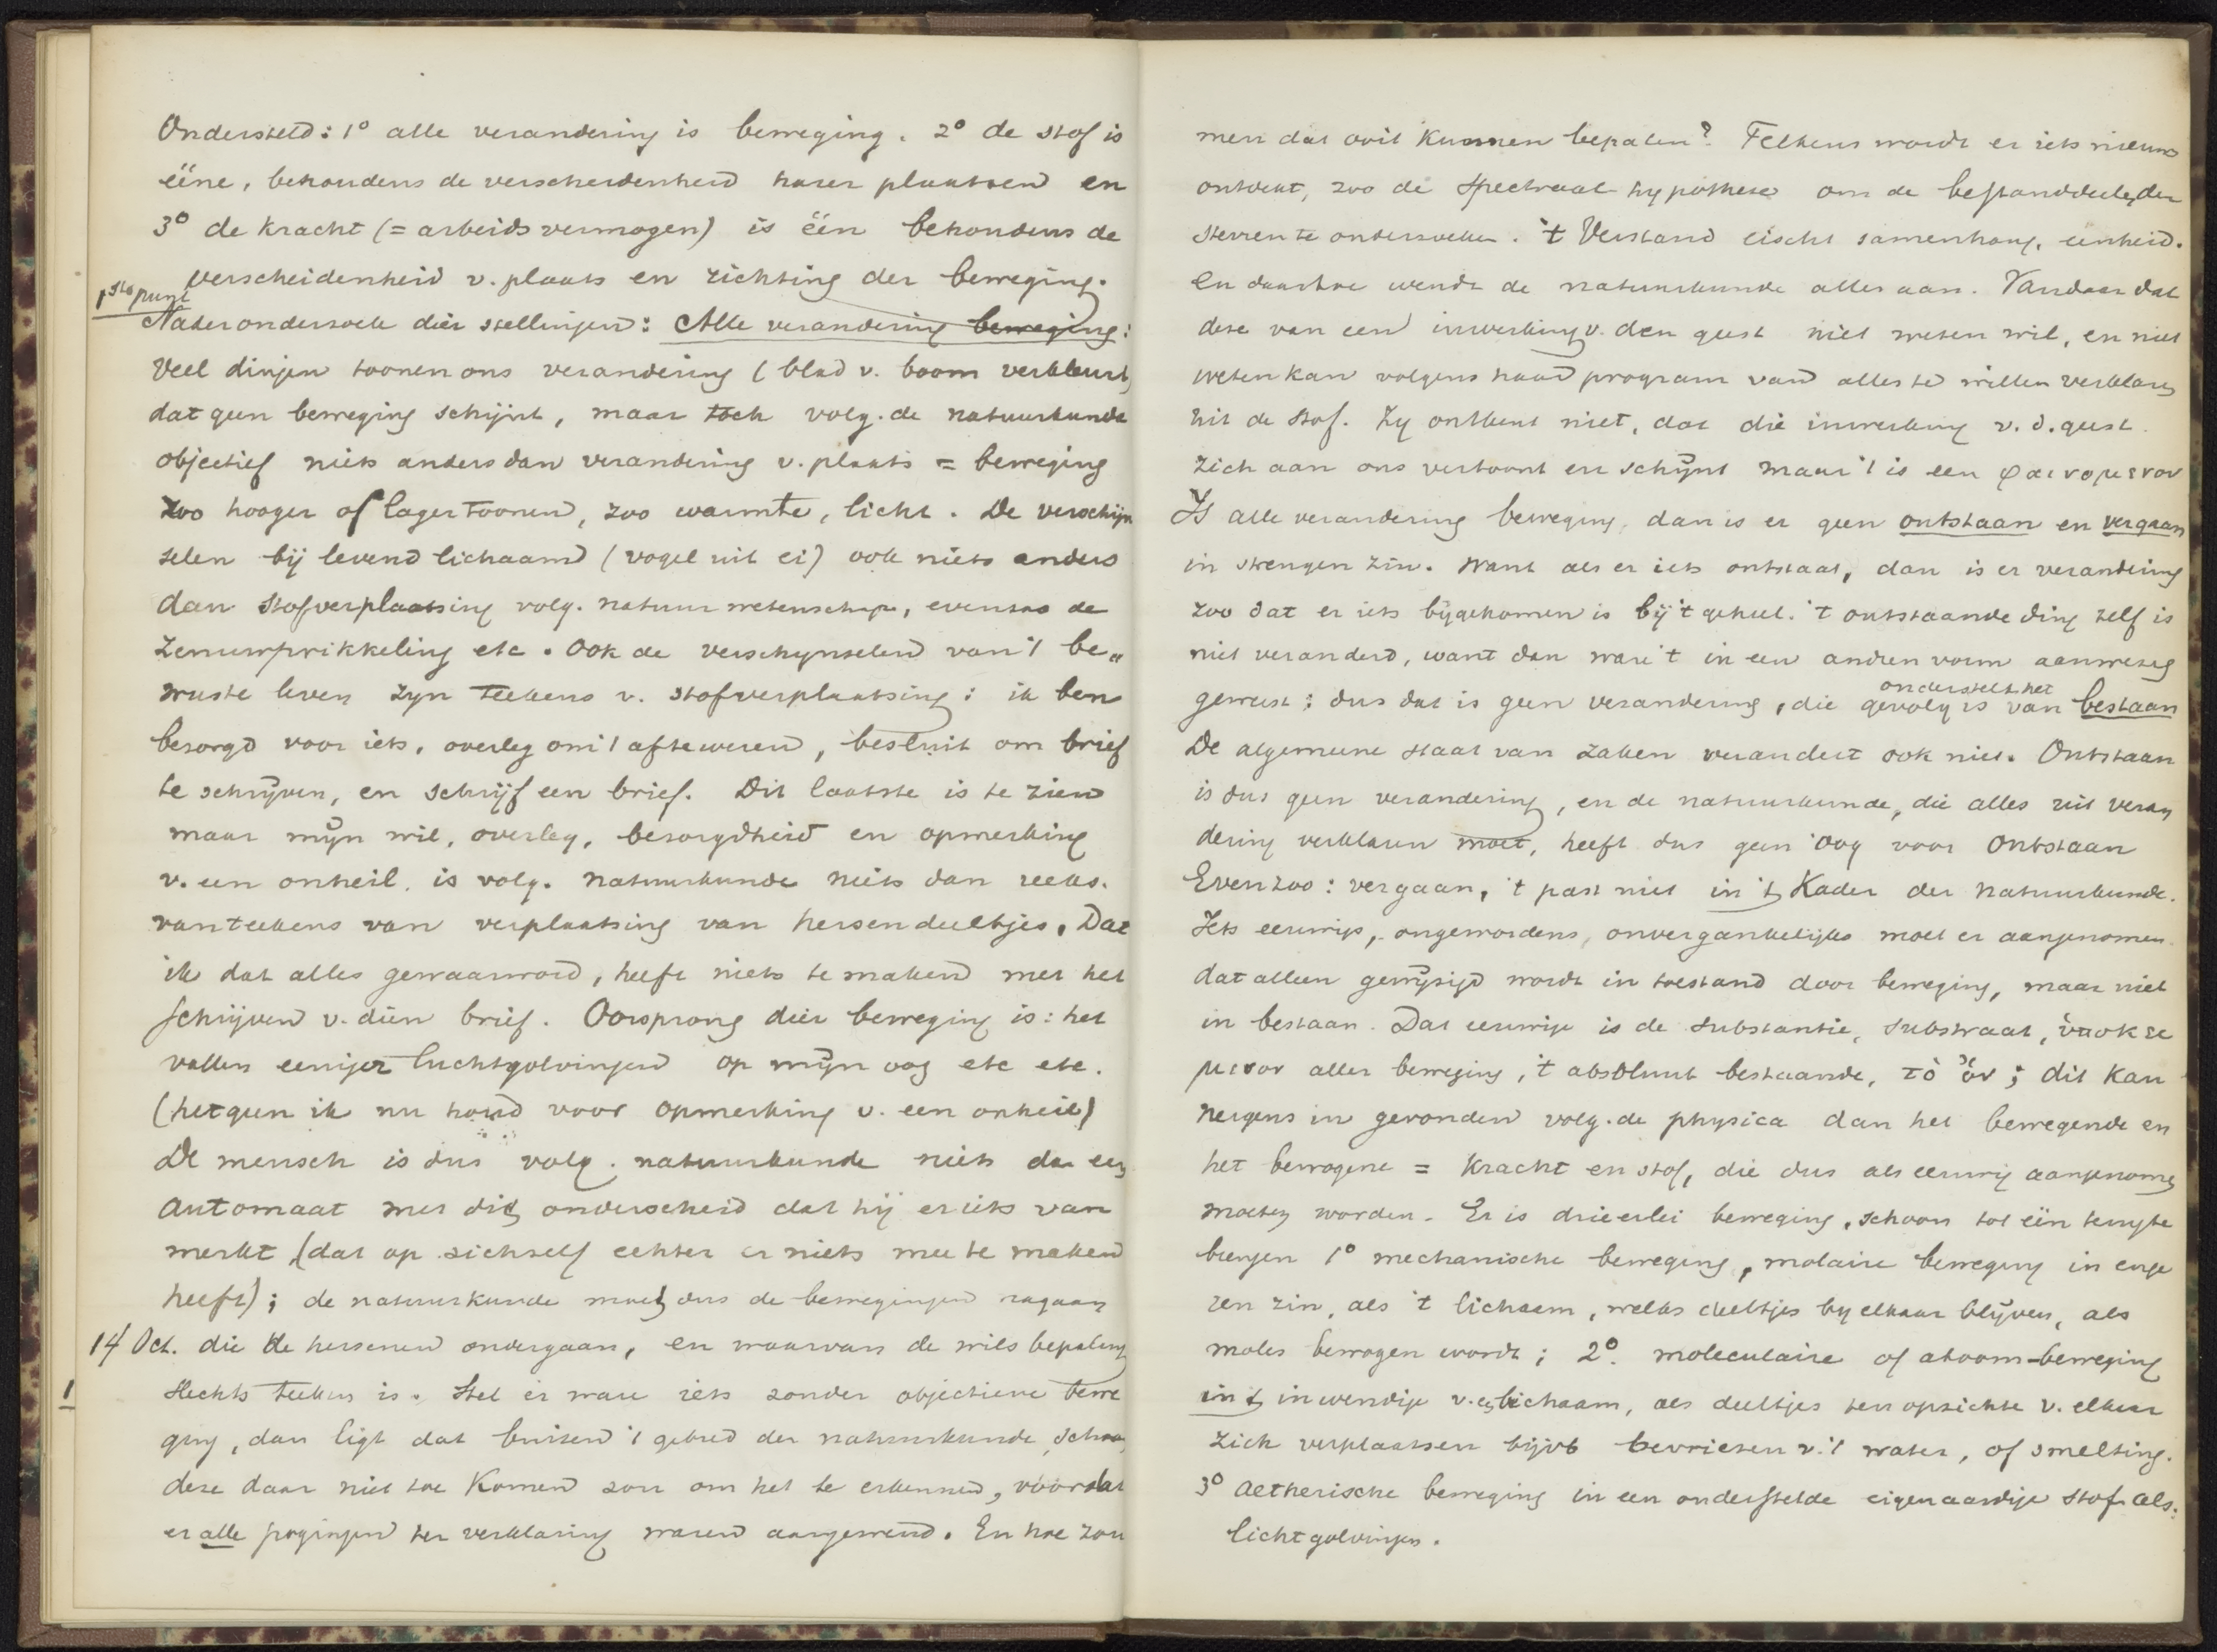 Ondersteld: 1° alle verandering is beweging. 2° de stof is
ééne, behoudens de verscheidenheid harer plaatsen en
3° de kracht (= arbeidsvermogen) is één behoudens de
verscheidenheid v. plaats en richting der beweging.
1ste punt
Nader onderzoek dier stellingen: Alle verandering beweging:
Veel dingen toonen ons verandering (blad v. boom verkleurt)
dat geen beweging schijnt, maar toch volg. de natuurkunde
objectief niets anders dan verandering v. plaats = beweging
zoo hooger of lager toonen, zoo warmte, licht. De verschijn
selen bij levend lichaam (vogel uit ei) ook niets anders
dan stofverplaatsing volg. natuurwetenschap, evenzoo de
zenuwprikkeling etc. Ook de verschynselen van 't be„
wuste leven zyn teekens v. stofverplaatsing: ik ben
bezorgd voor iets, overleg om 't afteweren, besluit om brief
te schrijven, en schrijf een brief. Dit laatste is te zien
maar mijn wil, overleg, bezorgdheid en opmerking
v. een onheil, is volg. natuurkunde niets dan reeks
van teekens van verplaatsing van hersendeeltjes. Dat
ik dat alles gewaarword, heeft niets te maken met het
schrijven v. dien brief. Oorsprong dier beweging is: het
vallen eeniger luchtgolvingen op mijn oog etc etc.
(hetgeen ik nu houd voor opmerking v. een onheil)
De mensch is dus volg. natuurkunde niets dan een
automaat met dit onderscheid dat hij er iets van
merkt (dat op zichzelf echter er niets mee te maken
heeft); de natuurkunde moet dus de bewegingen nagaan
14 Oct. die de hersenen ondergaan, en waarvan de wilsbepaling
1
slechts teeken is. Stel er ware iets zonder objectieve bewe
ging, dan ligt dat buiten 't gebied der natuurkunde, schoon
deze daar niet toe komen zou om het te erkennen, vóórdat
er alle pogingen ter verklaring waren aangewend. En hoe zou
men dat ooit kunnen bepalen? Telkens wordt er iets nieuws
ontdekt, zoo de spectraal-hypothese om de bestanddeelen der
sterren te onderzoeken. 't Verstand eischt samenhang, eenheid.
en daartoe wendt de natuurkunde alles aan. Vandaar dat
deze van een inwerking v. den geest niet weten wil, en niet
weten kan volgens haar program van alles te willen verklaren
uit de stof. Zy ontkent niet, dat die inwerking v. d. geest
zich aan ons vertoont en schijnt maar 't is een φαινομενον
Is alle verandering beweging, dan is er geen ontstaan en vergaan
in strengen zin. Want als er iets ontstaat, dan is er verandering
zoo dat er iets bijgekomen is bij 't geheel. 't ontstaande ding zelf is
niet veranderd, want dan ware 't in een andren vorm aanwezig
onderstelt het
geweest; dus dat is geen verandering, die gevolg is van bestaan
De algemeene staat van zaken verandert ook niet. Ontstaan
is dus geen verandering, en de natuurkunde, die alles uit veran
dering verklaren moet, heeft dus geen oog voor ontstaan
Evenzoo: vergaan, 't past niet in 't Kader der natuurkunde.
Iets eeuwigs, ongewordens, onvergankelijks moet er aangenomen
dat alleen gewijzigd wordt in toestand door beweging, maar niet
in bestaan. Dat eeuwige is de substantie, substraat, ὑποκει
μενον aller beweging, 't absoluut bestaande, τὸ ὄν; dit kan
nergens in gevonden volg. de physica dan het bewegende en
het bewogene = kracht en stof, die dus als eeuwig aangenomen
moeten worden. Er is drieërlei beweging, schoon tot één terug te
brengen 1° mechanische beweging, molaire beweging in enge
ren zin, als 't lichaam, welks deeltjes by elkaar blijven, als
moles bewogen wordt; 2°. moleculaire of atoom-beweging
in 't inwendige v. een lichaam, als deeltjes ten opzichte v. elkaar
zich verplaatsen bijvb bevriezen v. 't water, of smelting.
3° aetherische beweging in een onderstelde eigenaardige stof als:
lichtgolvingen.